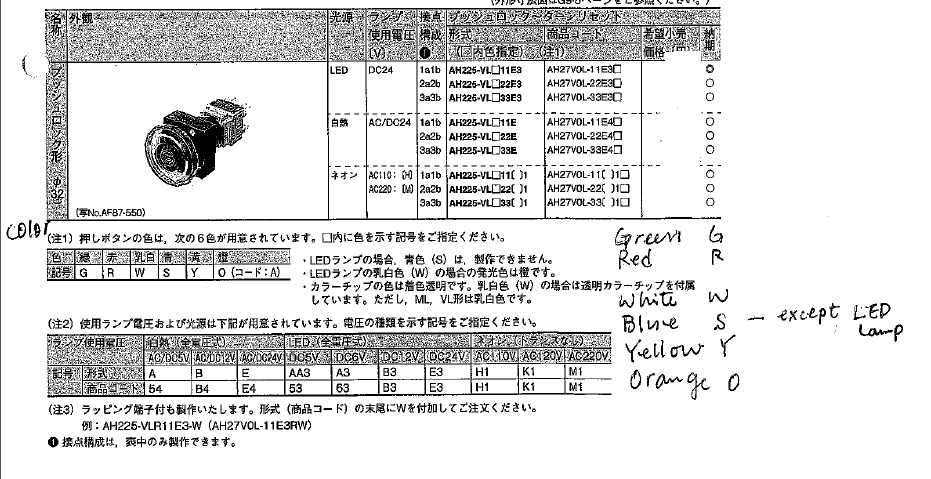 名称 外観 光源 ランプ使用電圧(V) 接点構成❶ プッシュロックターンリセット 納期
形式(□内色指定) 商品コード(注1) 希望小売価格
プッシュロック形 φ32
LED DC24 1a1b AH225-VL□11E3 AH27V0L-11E3□ ◎
2a2b AH225-VL□22E3 AH27V0L-22E3□ ○
3a3b AH225-VL□33E3 AH27V0L-33E3□ ○
白熱 AC/DC24 1a1b AH225-VL□11E AH27V0L-11E4□ ○
2a2b AH225-VL□22E AH27V0L-22E4□ ○
3a3b AH225-VL□33E AH27V0L-33E4□ ○
ネオン AC110:(H) 1a1b AH225-VL□11( )1 AH27V0L-11( )1□ ○
AC220:(M) 2a2b AH225-VL□22( )1 AH27V0L-22( )1□ ○
3a3b AH225-VL□33( )1 AH27V0L-33( )1□ ○
(写No.AF87-550)
color
(注1) 押しボタンの色は,次の6色が用意されています。□内に色を示す記号をご指定ください。
色 緑 赤 乳白 青 黄 橙
記号 G R W S Y O(コード:A)
・LEDランプの場合,青色(S)は,製作できません。
・LEDランプの乳白色(W)の場合の発光色は橙です。
・カラーチップの色は着色透明です。乳白色(W)の場合は透明カラーチップを付属
しています。ただし,ML,VL形は乳白色です。
Green G
Red R
White W
Blue S — except LED lamp
Yellow Y
Orange O
(注2) 使用ランプ電圧および光源は下記が用意されています。電圧の種類を示す記号をご指定ください。
ランプ使用電圧 白熱(全電圧式) LED(全電圧式) ネオン(トランスなし)
AC/DC5V AC/DC12V AC/DC24V DC5V DC6V DC12V DC24V AC110V AC120V AC220V
記号 形式 A B E AA3 A3 B3 E3 H1 K1 M1
商品コード 54 B4 E4 53 63 B3 E3 H1 K1 M1
(注3) ラッピング端子付も製作いたします。形式(商品コード)の末尾にWを付加してご注文ください。
例:AH225-VLR11E3-W(AH27V0L-11E3RW)
❶接点構成は,表中のみ製作できます。